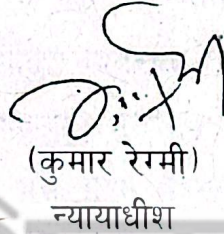 (कुमार रेग्मी)
न्यायाधीश